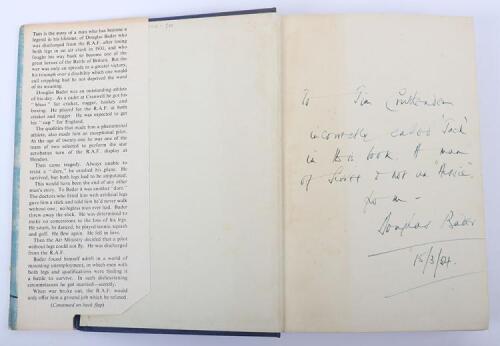 This is the story of a man who has become a
legend in his lifetime, of Douglas Bader who
was discharged from the R.A.F. after losing
both legs in an air crash in 1931, and who
fought his way back to become one of the
great heroes of the Battle of Britain. But the
war was only an episode in a greater victory,
his triumph over a disability which one would
call crippling had he not deprived the word
of its meaning.
Douglas Bader was an outstanding athlete
of his day. As a cadet at Cranwell he got his
"blues" for cricket, rugger, hockey and
boxing. He played for the R.A.F. at both
cricket and rugger. He was expected to get
his "cap" for England.
The qualities that made him a phenomenal
athlete, also made him an exceptional pilot.
At the age of twenty-one he was one of the
team of two selected to perform the star
acrobatic turn of the R.A.F. display at
Hendon.
Then came tragedy. Always unable to
resist a "dare," he crashed his plane. He
survived, but both legs had to be amputated.
This would have been the end of any other
man's story. To Bader it was another "dare."
The doctors who fitted him with artificial legs
gave him a stick and told him he'd never walk
without one; no legless man ever had. Bader
threw away the stick. He was determined to
make no concessions to the loss of his legs.
He swam, he danced, he played tennis, squash
and golf. He flew again. He fell in love.
Then the Air Ministry decided that a pilot
without legs could not fly. He was discharged
from the R.A.F.
Bader found himself adrift in a world of
mounting unemployment, in which men with
both legs and qualifications were finding it
a battle to survive. In such disheartening
circumstances he got married—secretly.
When war broke out, the R.A.F. would
only offer him a ground job which he refused.
(Continued on back flap)
To - Tim Cruttenden
incorrectly called 'Jack'
in this book. A man
of Sussex & not an
from -
Douglas Bader
15/3/54.